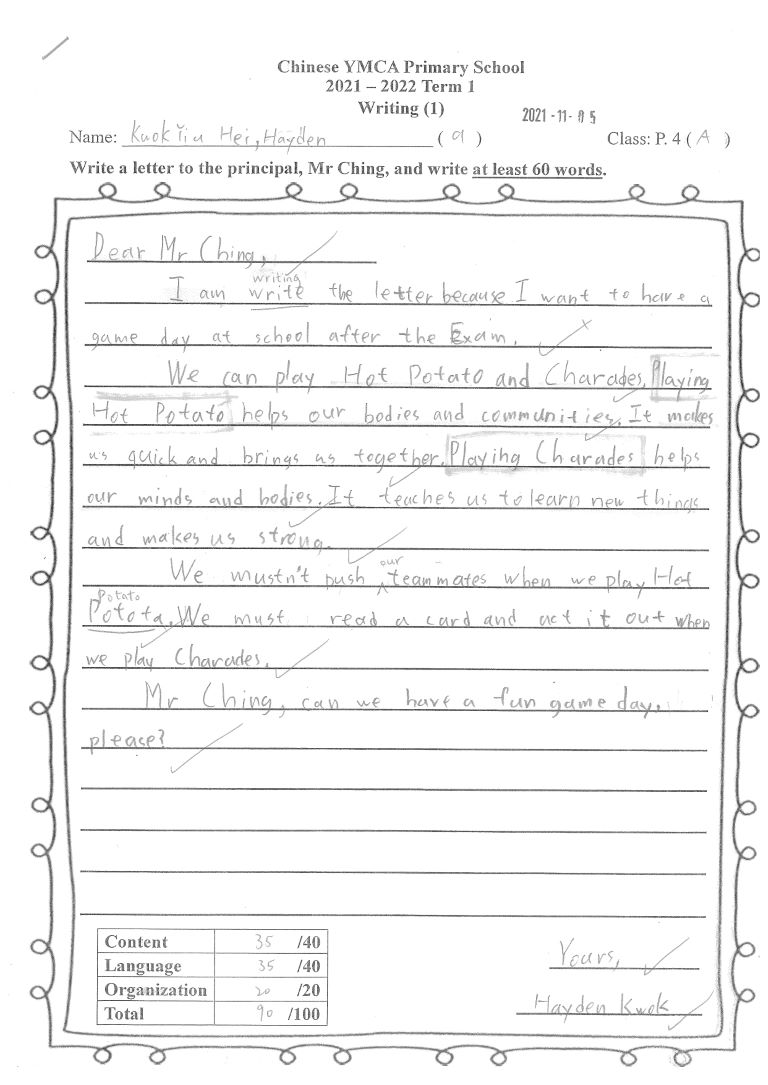 Chinese YMCA Primary School
2021 – 2022 Term 1
Writing (1)
2021-11-05
Name: Kwok Yiu Hei, Hayden (9) Class: P. 4 (A)
Write a letter to the principal, Mr Ching, and write at least 60 words.
Dear Mr Ching,
writing
I am write the letter because I want to have a
game day at school after the Exam.
We can play Hot Potato and Charades. Playing
Hot Potato helps our bodies and communities. It makes
us quick and brings us together. Playing Charades helps
our minds and bodies. It teaches us to learn new things
and makes us strong.
our
We mustn't push teammates when we play Hot
Potato
Potota. We must read a card and act it out when
we play Charades.
Mr Ching, can we have a fun game day,
please?
Content 35 /40
Language 35 /40
Organization 20 /20
Total 90 /100
Yours,
Hayden Kwok